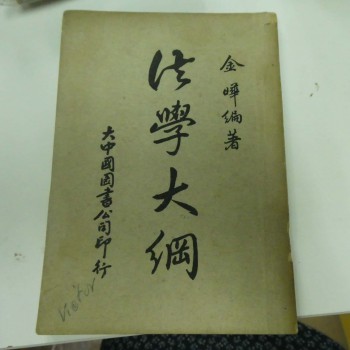 金曄編著
法學大綱
大中國圖書公司印行
Victor